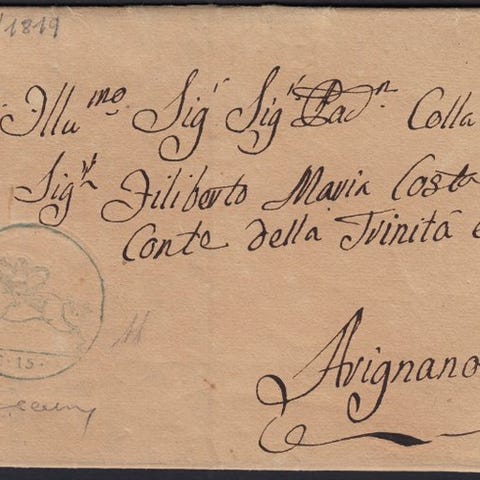 1819
Illu.mo Sigr Sigr Padn. Colla
Sigr Filiberto Maria Costa
Conte della Trinità e
Arignano
15.